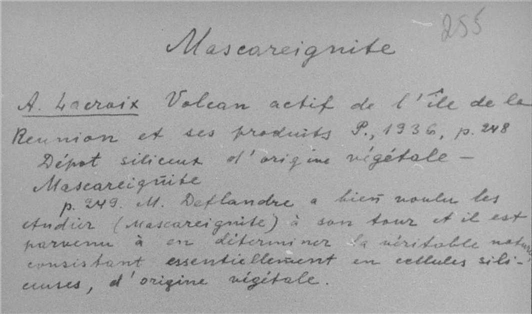 255
Mascareignite
A. Lacroix Volcan actif de l'île de la
Reunion et ses produits P., 1936, p. 248
Dépot siliceux d'origine végétale –
Mascareignite
p. 249. M. Deflandre a bien voulu les
etudier (Mascareignite) à son tour et il est
parvenu à en déterminer la véritable nature
consistant essentiellement en cellules sili-
ceuses, d'origine végétale.